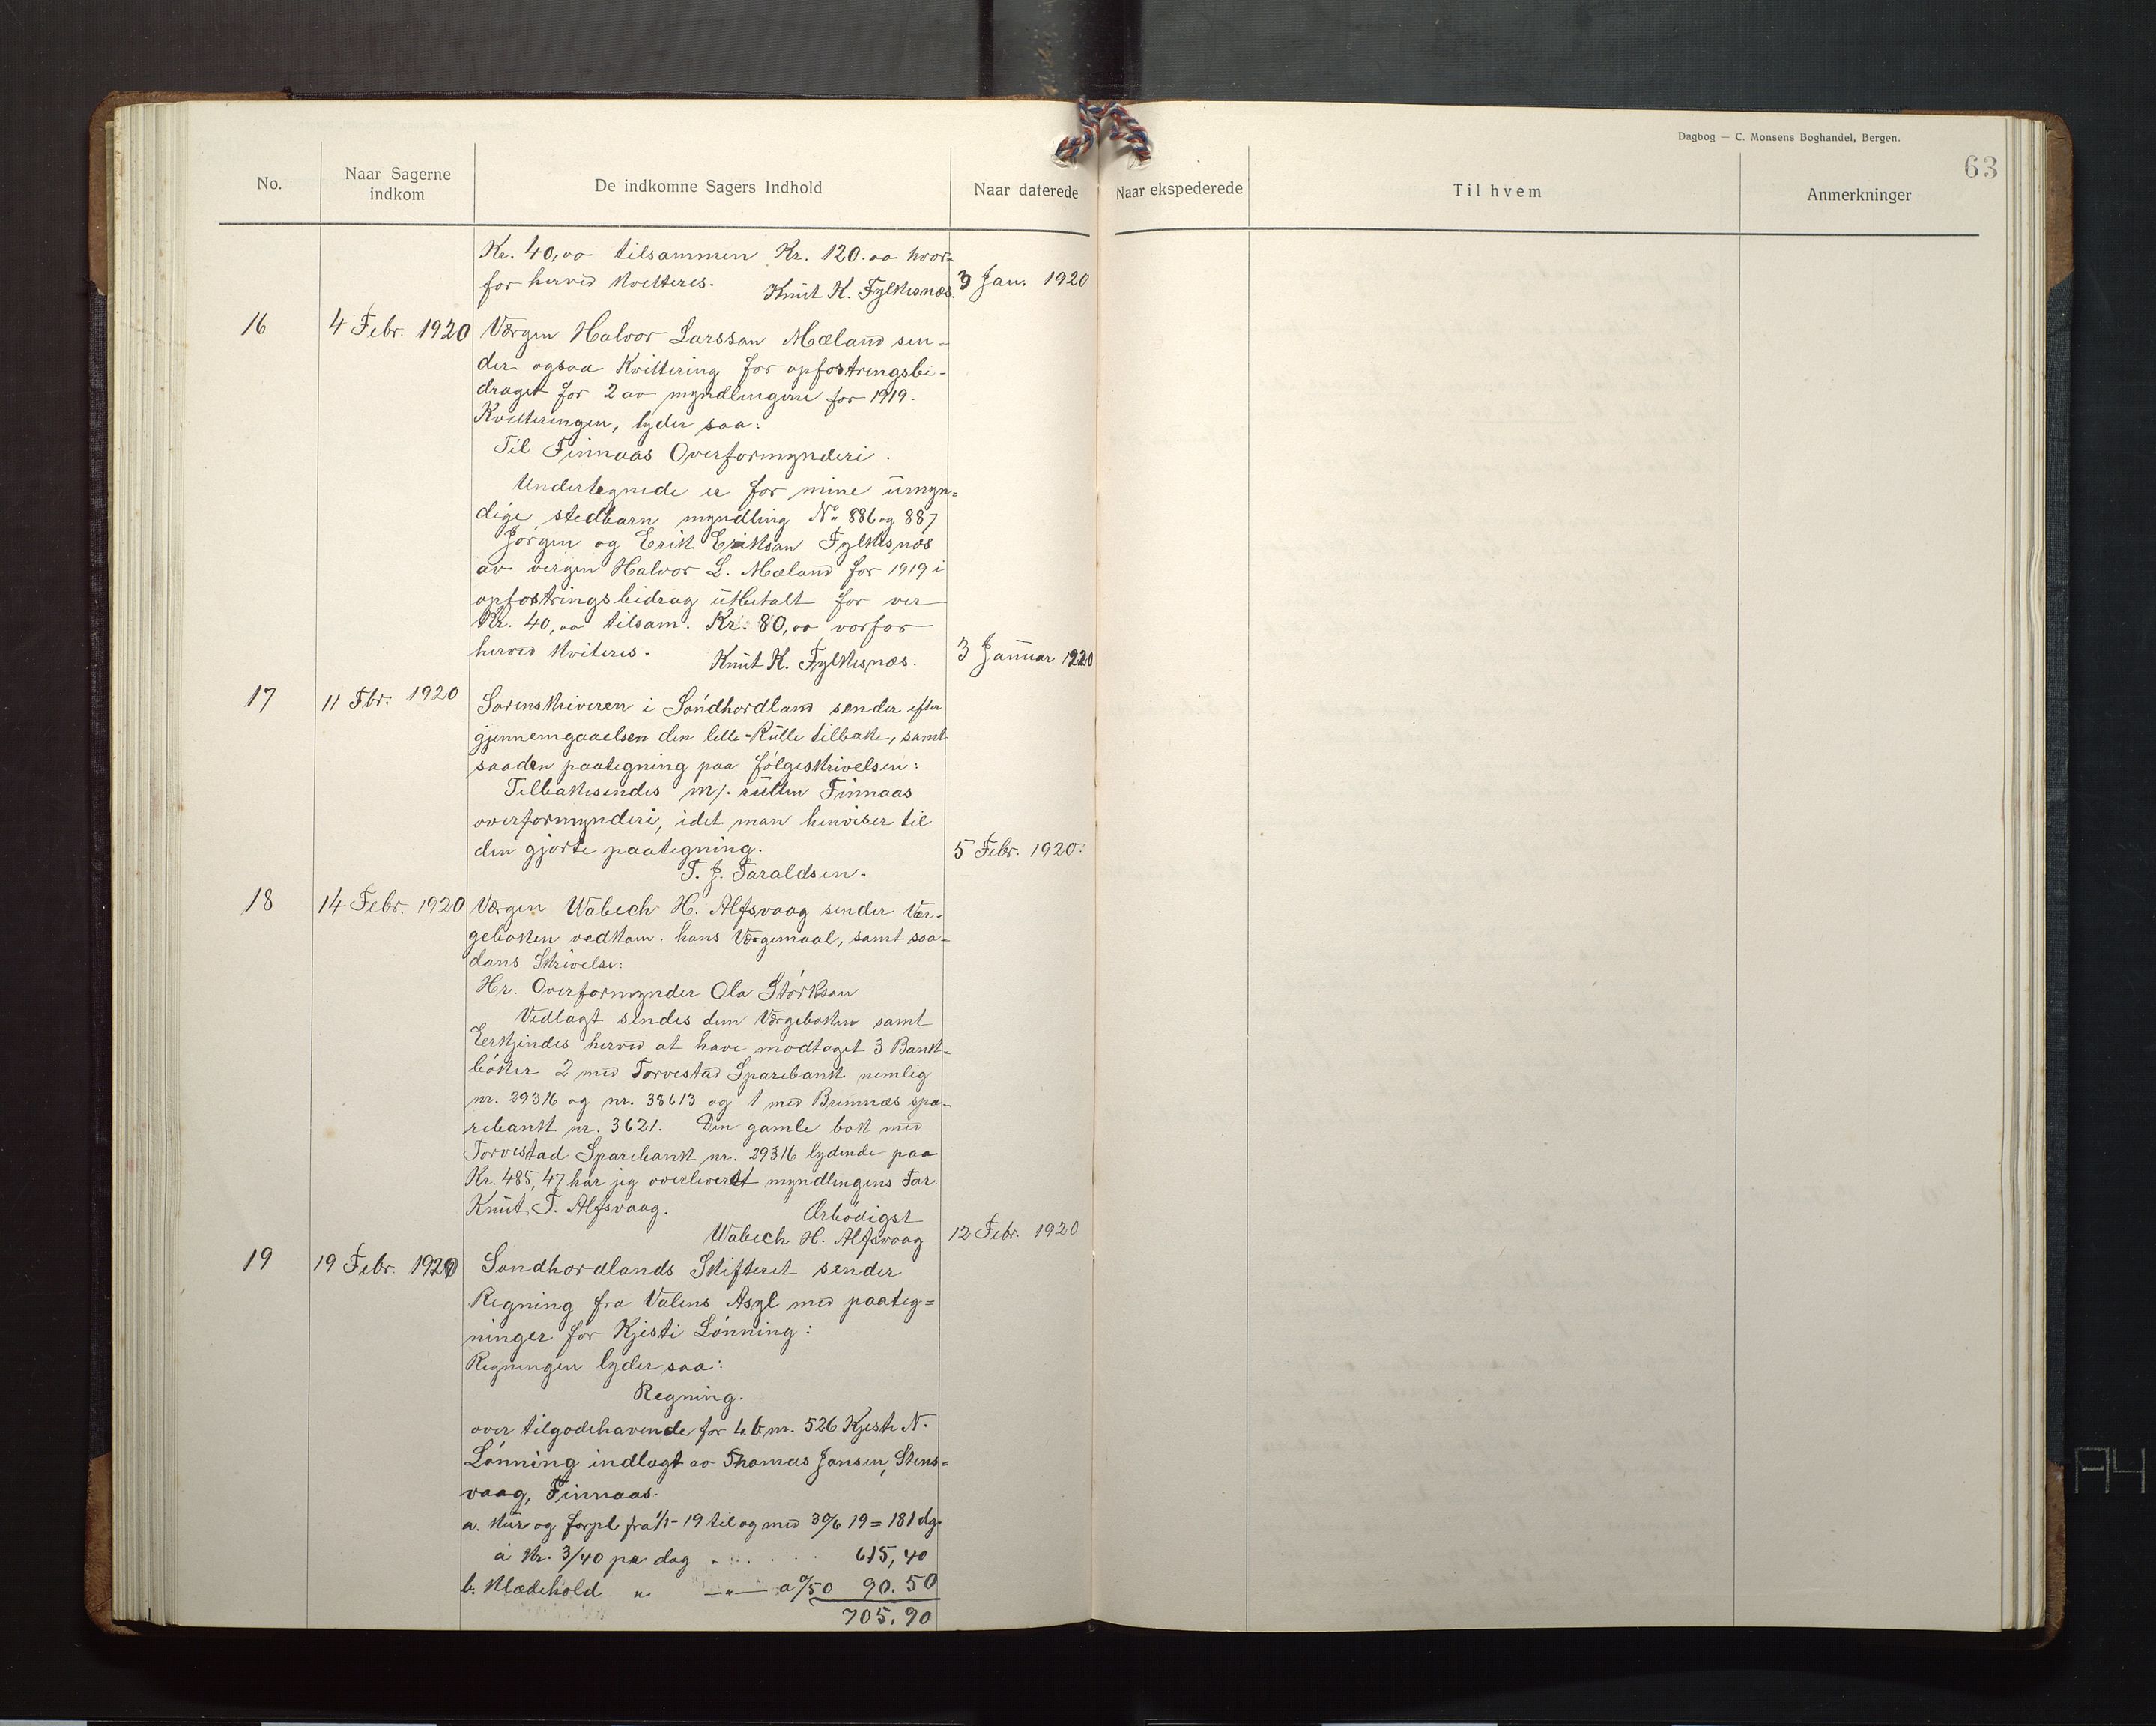 Dagbog — C. Monsens Boghandel, Bergen.
63
No.
Naar Sagerne indkom
De indkomne Sagers Indhold
Naar daterede
Naar ekspederede
Til hvem
Anmerkninger
Kr. 40,00 tilsammen Kr. 120.00 hvor-
for herved kvitteres.
Knut K. Fylkesnæs. 3 Jan. 1920
16 4 Febr. 1920 Værgen Halvor Larssan Mæland sen-
der ogsaa Kvittering for opfostringsbi-
draget for 2 av myndlingene for 1919.
Kvitteringen, lyder saa:
Til Finnaas Overformynderi.
Undertegnede er for mine umyn=
dige stedbarn myndling No 886 og 887
Jørgen og Erik Eriksan Fylkesnæs
av vergen Halvor L. Mæland for 1919 i
opfostringsbidrag utbetalt for ver
Kr. 40,00 tilsam. Kr. 80,00 vorfor
herved kviteres.
Knut K. Fylkesnæs. 3 Januar 1920
17 11 Fbr. 1920 Sorenskriveren i Søndhordland sender efter
gjennemgaaelsen den lille Rulle tilbake, samt
saaden paategning paa følgeskrivelsen:
Tilbakesendes m/. rullen Finnaas
overformynderi, idet man henviser til
den gjorte paategning. 5 Febr. 1920.
T. J. Taraldsen.
18 14 Febr. 1920 Værgen Wabech H. Alfsvaag sender Vær-
geboken vedkom. hans Værgemaal, samt saa-
dans Skrivelse:
Hr. Overformynder Ola Størksan
Vedlagt sendes dem Værgeboken samt
Eerkjendes herved at have modtaget 3 Bank-
bøker 2 med Torvestad Sparebank nemlig
nr. 29316 og nr. 38613 og 1 med Bremnæs spa-
rebank nr. 3621. Den gamle bok med
Torvestad Sparebank nr. 29316 lydende paa
Kr. 485,47 har jeg overleveret myndlingens Far.
Knut T. Alfsvaag.
Ørbødigst
Wabech H. Alfsvaag 12 Febr. 1920
19 19 Febr. 1920 Søndhordlands Skifteret sender
Regning fra Valens Asyl med paateg=
ninger for Kjesti Lønning:
Regningen lyder saa:
Regning.
over tilgodehavende for nr. 526 Kjesti N.
Lønning indlagt av Thomas Jansen, Stens=
vaag, Finnaas.
a. Kur og forpl fra 1/1-19 til og med 30/6 19 = 181 dg.
á Kr. 3/40 pr dag . . . . . 615,40
b. Klædehold „ —„— a 0/50 90.50
705,90